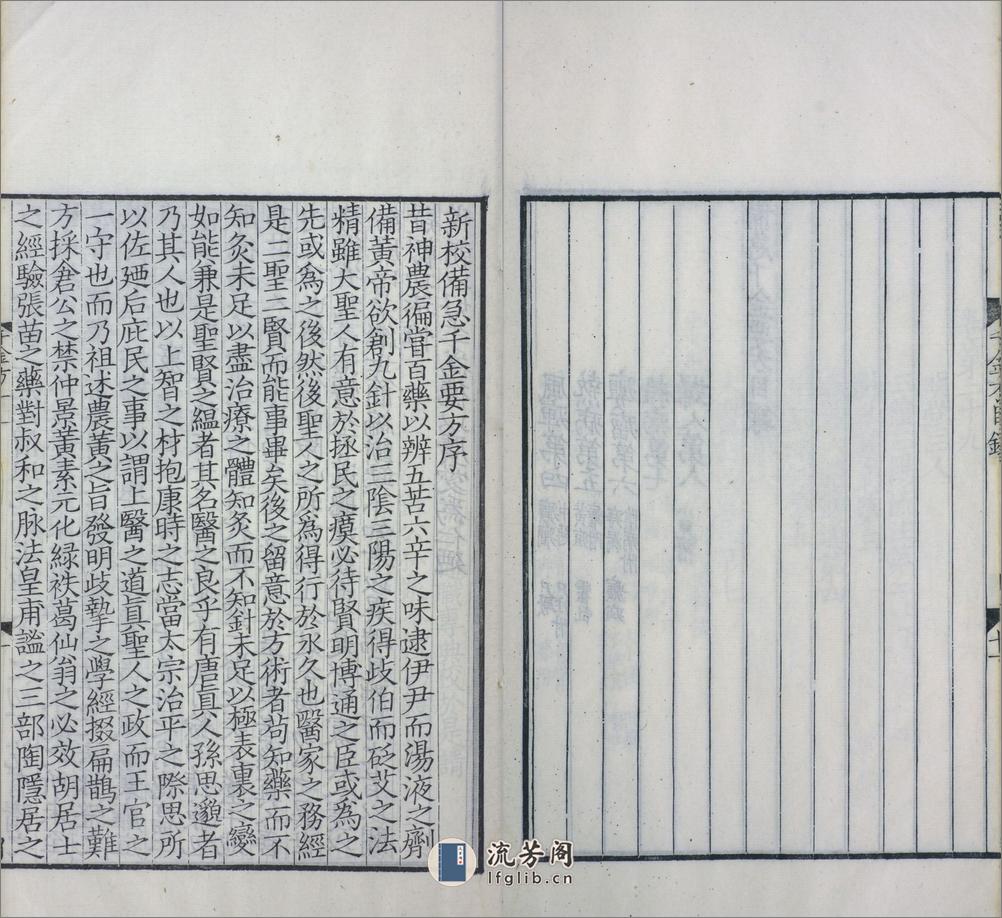 新校備急千金要方序
昔神農徧嘗百藥以辨五苦六辛之味逮伊尹而湯液之劑
備黃帝欲創九針以治三陰三陽之疾得歧伯而砭艾之法
精雖大聖人有意於拯民之瘼必待賢明博通之臣或為之
先或為之後然後聖人之所為得行於永久也醫家之務經
是二聖二賢而能事畢矣後之留意於方術者苟知藥而不
知灸未足以盡治療之體知灸而不知針未足以極表裏之變
如能兼是聖賢之縕者其名醫之良乎有唐真人孫思邈者
乃其人也以上智之材抱康時之志當太宗治平之際思所
以佐廼后庇民之事以謂上醫之道真聖人之政而王官之
一守也而乃祖述農黃之旨發明歧摯之學經掇扁鵲之難
方採倉公之禁仲景黃素元化緑袟葛仙翁之必效胡居士
之經驗張苗之藥對叔和之脉法皇甫謐之三部陶隱居之
流芳阁
lfglib.cn